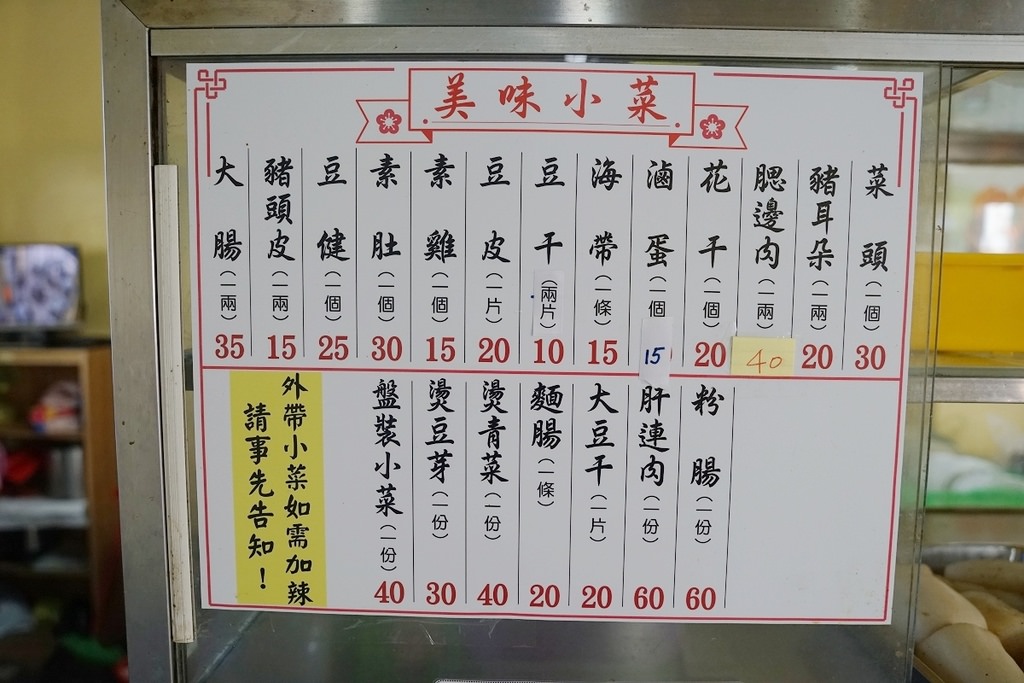 美味小菜
菜頭(一個)30
豬耳朵(一兩)20
腮邊肉(一兩)40
花干(一個)20
滷蛋(一個)15
海帶(一條)15
豆干(兩片)10
豆皮(一片)20
素雞(一個)15
素肚(一個)30
豆健(一個)25
豬頭皮(一兩)15
大腸(一兩)35
粉腸(一份)60
肝連肉(一份)60
大豆干(一片)20
麵腸(一條)20
燙青菜(一份)40
燙豆芽(一份)30
盤裝小菜(一份)40
外帶小菜如需加辣
請事先告知！